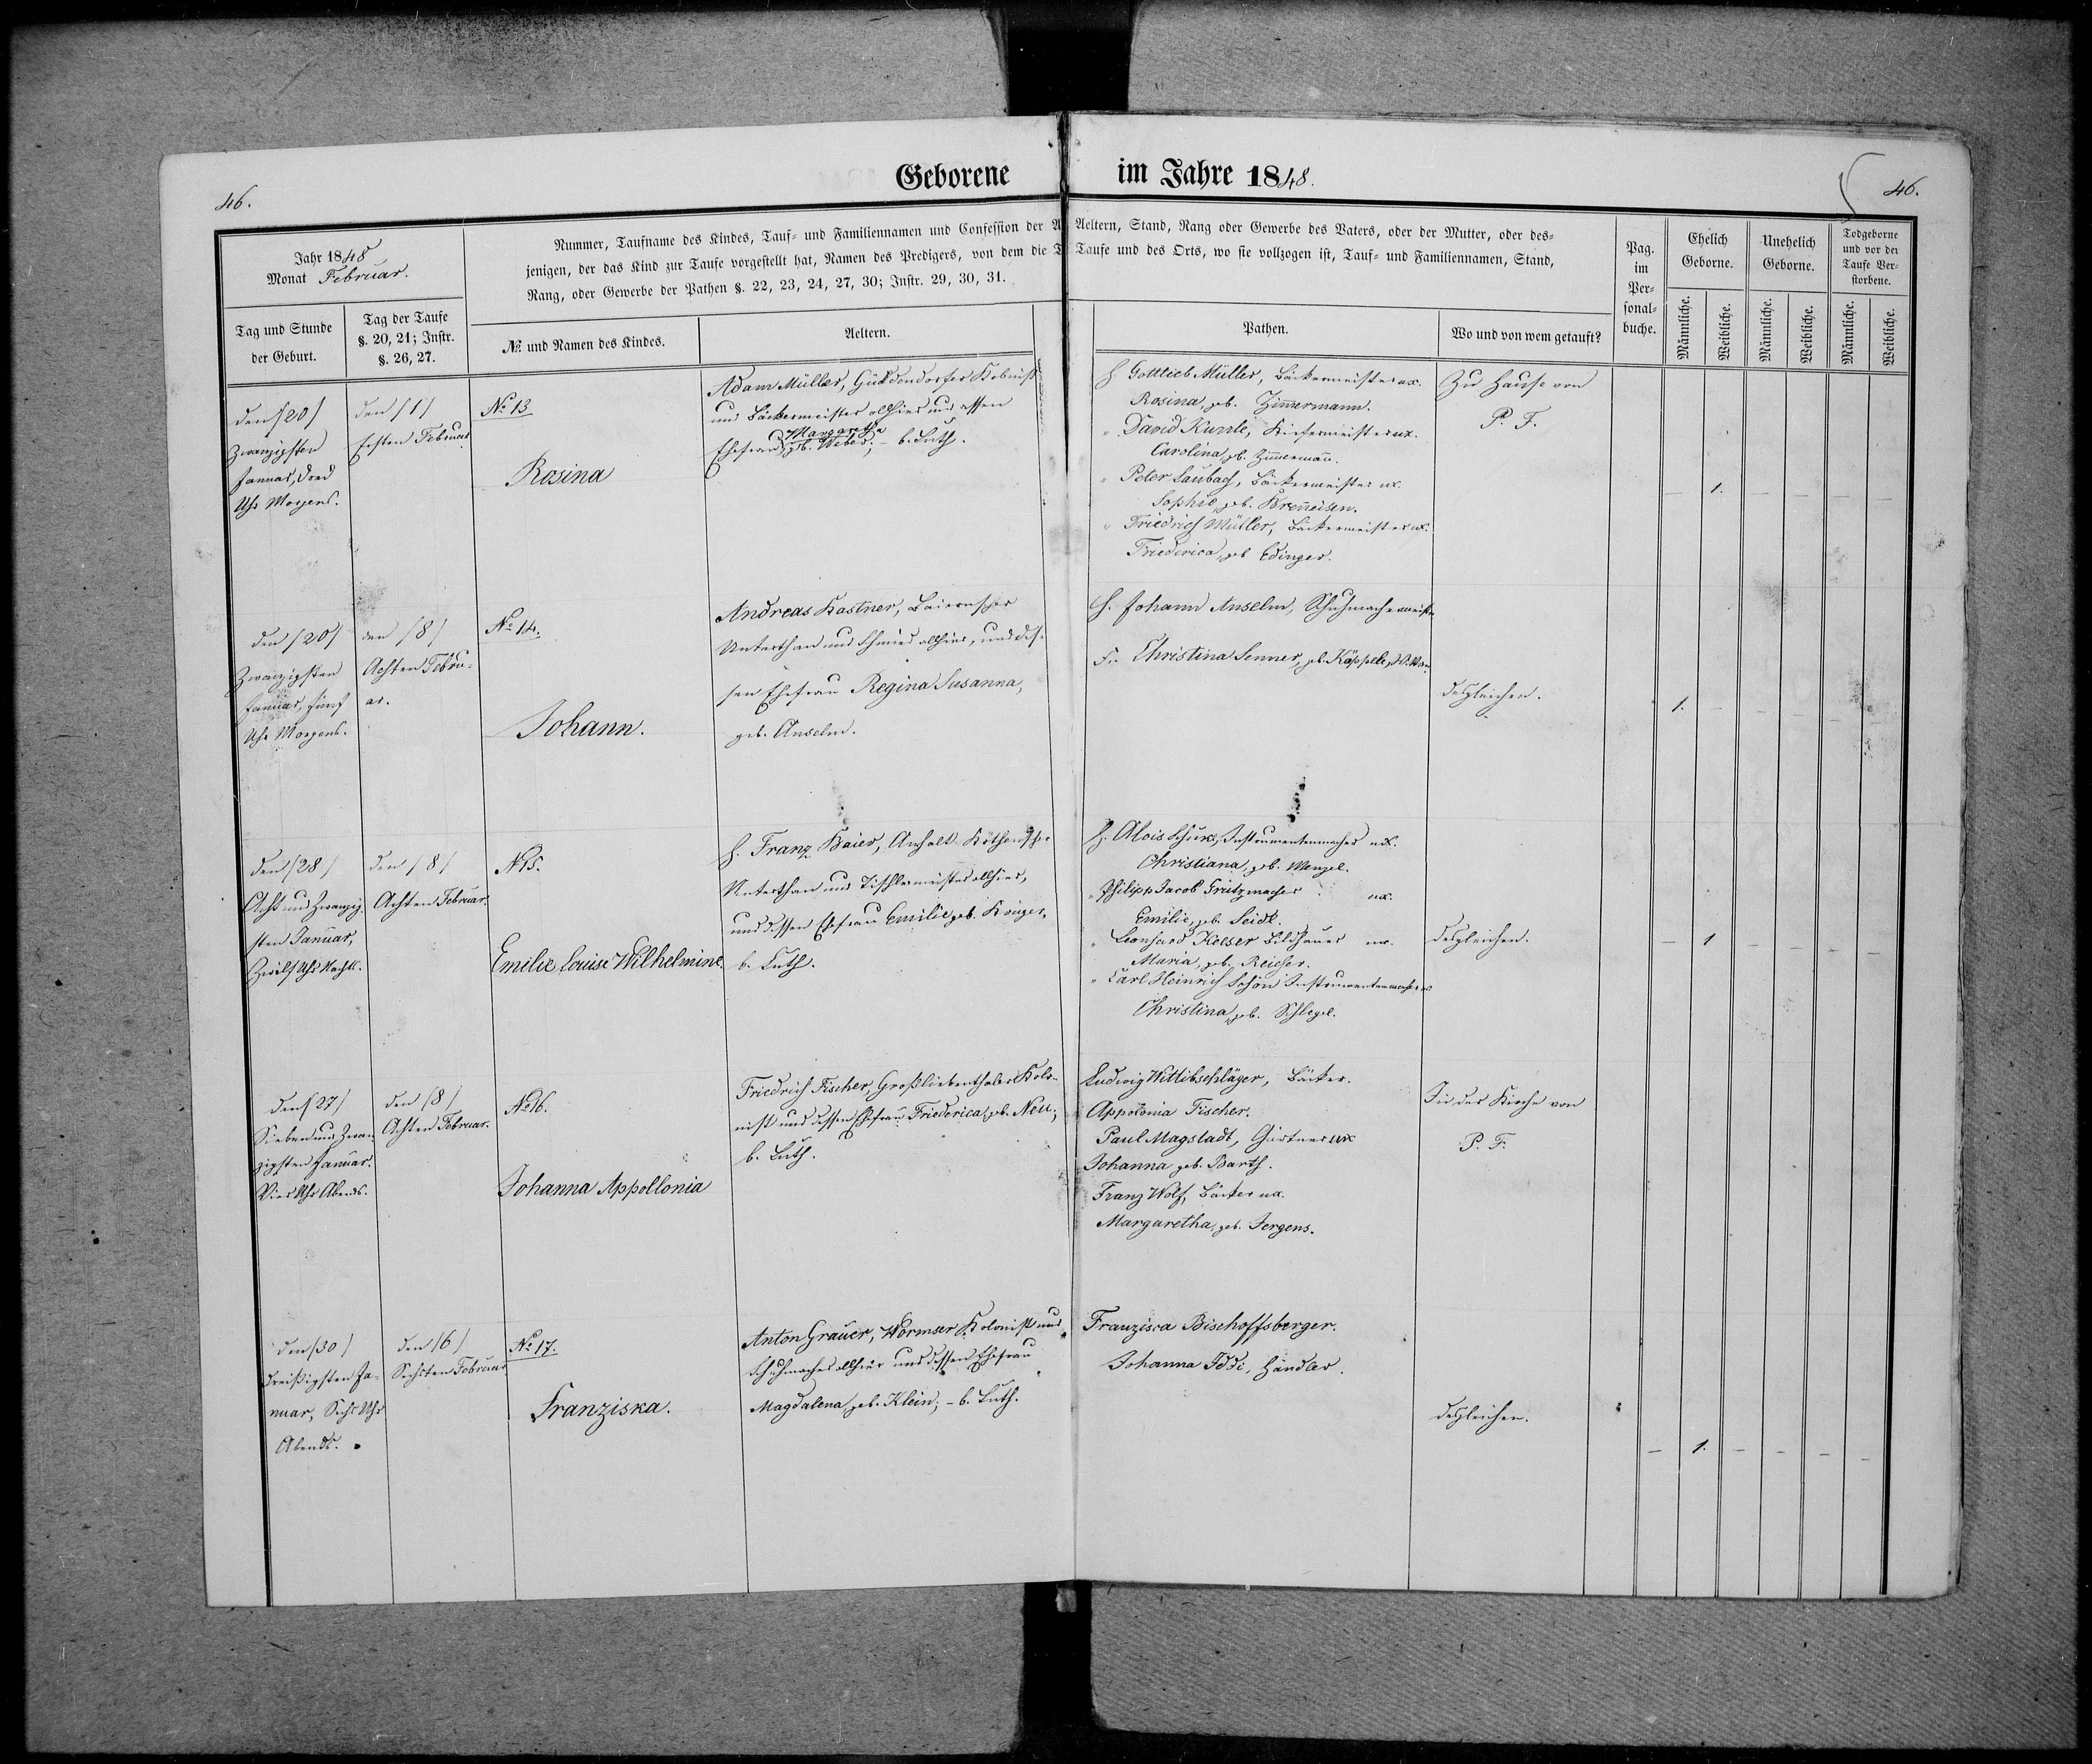 Geborene im Jahre 1848.
46.
46.
Jahr 1848
Monat Februar.
Nummer, Taufname des Kindes, Tauf- und Familiennamen und Confession der Aeltern, Stand, Rang oder Gewerbe des Vaters, oder der Mutter, oder des-
jenigen, der das Kind zur Taufe vorgestellt hat, Namen des Predigers, von dem die Taufe und des Orts, wo sie vollzogen ist, Tauf- und Familiennamen, Stand,
Rang, oder Gewerbe der Pathen §. 22, 23, 24, 27, 30; Instr. 29, 30, 31.
Tag und Stunde
der Geburt.
Tag der Taufe
§. 20, 21; Instr.
§. 26, 27.
№ und Namen des Kindes.
Aeltern.
Pathen.
Wo und von wem getauft?
Pag.
im
Per-
sonal-
buche.
Ehelich
Geborne.
Unehelich
Geborne.
Todgeborne
und vor der
Taufe Ver-
storbene.
Männliche.
Weibliche.
Männliche.
Weibliche.
Männliche.
Weibliche.
den /20/
Zwanzigsten
Januar,
Uhr Morgens.
den /1/
Ersten Februar
№ 13
Rosina
Adam Müller, Güldendorfer Kolonist
und Bäckermeister allhier und dessen
Margaretha
Ehefrau geb. Weber; - b. Luth.
H. Gottlieb Müller, Bäckermeister ux.
Rosina, geb. Zimmermann.
" David Kunzle, Kiefermeister ux.
Carolina, gb. Zimmermann.
" Peter Laubach, Bäckermeister ux.
Sophie, geb. Brenneisen.
" Friedrich Müller, Bäckermeister ux.
Friederica, geb. Edinger.
Zu Hause von
P. F.
– 1. – – – –
den /20/
Zwanzigsten
Januar, fünf
Uhr Morgens.
den /8/
Achten Febru-
ar.
№ 14.
Johann.
Andreas Kastner, Baierischer
Unterthan und Schmied allhier, und des-
sen Ehefrau Regina Susanna,
geb. Anselm.
H. Johann Anselm, Schuhmachermeister
Fr. Christina Senner, gb. Käppele,
desgleichen.
1. – – – – –
den /28/
Acht und Zwanzig-
sten Januar,
Zwölf Uhr Nachts.
den /8/
Achten Februar.
№ 15.
Emilie Louise Wilhelmine.
H. Franz Baier, Anhalt-Köthenscher
Unterthan und Tischlermeister allhier,
und dessen Ehefrau Emilie geb. Krüger,
b. Luth.
H. Alois Schurz, Instrumentenmacher ux.
Christiana, geb. Menzel.
" Philipp Jacob Grützmacher ux.
Emilie, geb. Seidt.
" Leonhard Kelser Bildhauer ux.
Maria, geb. Reicher.
" Carl Heinrich Schön Instrumentenmacher ux
Christina, geb. Schlegel.
desgleichen.
– 1 – – – –
den /27/
Sieben und Zwan-
zigsten Januar.
Vier Uhr Abends.
den /8/
Achten Februar.
№ 16.
Johanna Appollonia
Friedrich Fischer, Großliebenthaler Kolo-
nist und dessen Ehefrau Friederica, gb. Neu;
b. Luth.
Ludwig Wittibschläger, Bäcker.
Appolonia Fischer.
Paul Magstadt, Gärtner ux
Johanna geb. Barth.
Franz Wolf, Bäcker ux.
Margaretha, geb. Jergens.
In der Kirche von
P. F.
den /30/
dreißigsten Ja-
nuar, Sechs Uhr
Abends.
den /6/
Sechsten Februar
№ 17.
Franziska.
Anton Grauer, Wormser Kolonist und
Schuhmacher allhier und dessen Ehefrau
Magdalena geb. Klein; - b. Luth.
Franzisca Bischoffsberger.
Johanna Händler.
desgleichen.
– 1. – – – –